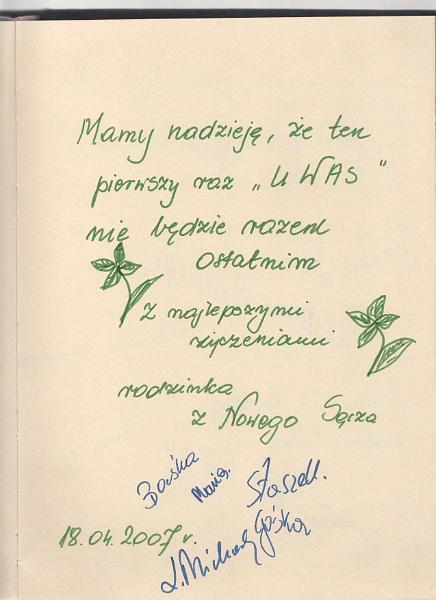 Mamy nadzieję, że ten
pierwszy raz „U WAS"
nie będzie razem
ostatnim
Z najlepszymi
życzeniami
rodzinka
z Nowego Sącza
Baśka
Maria.
Staszek.
Gośka
18.04.2007 r.